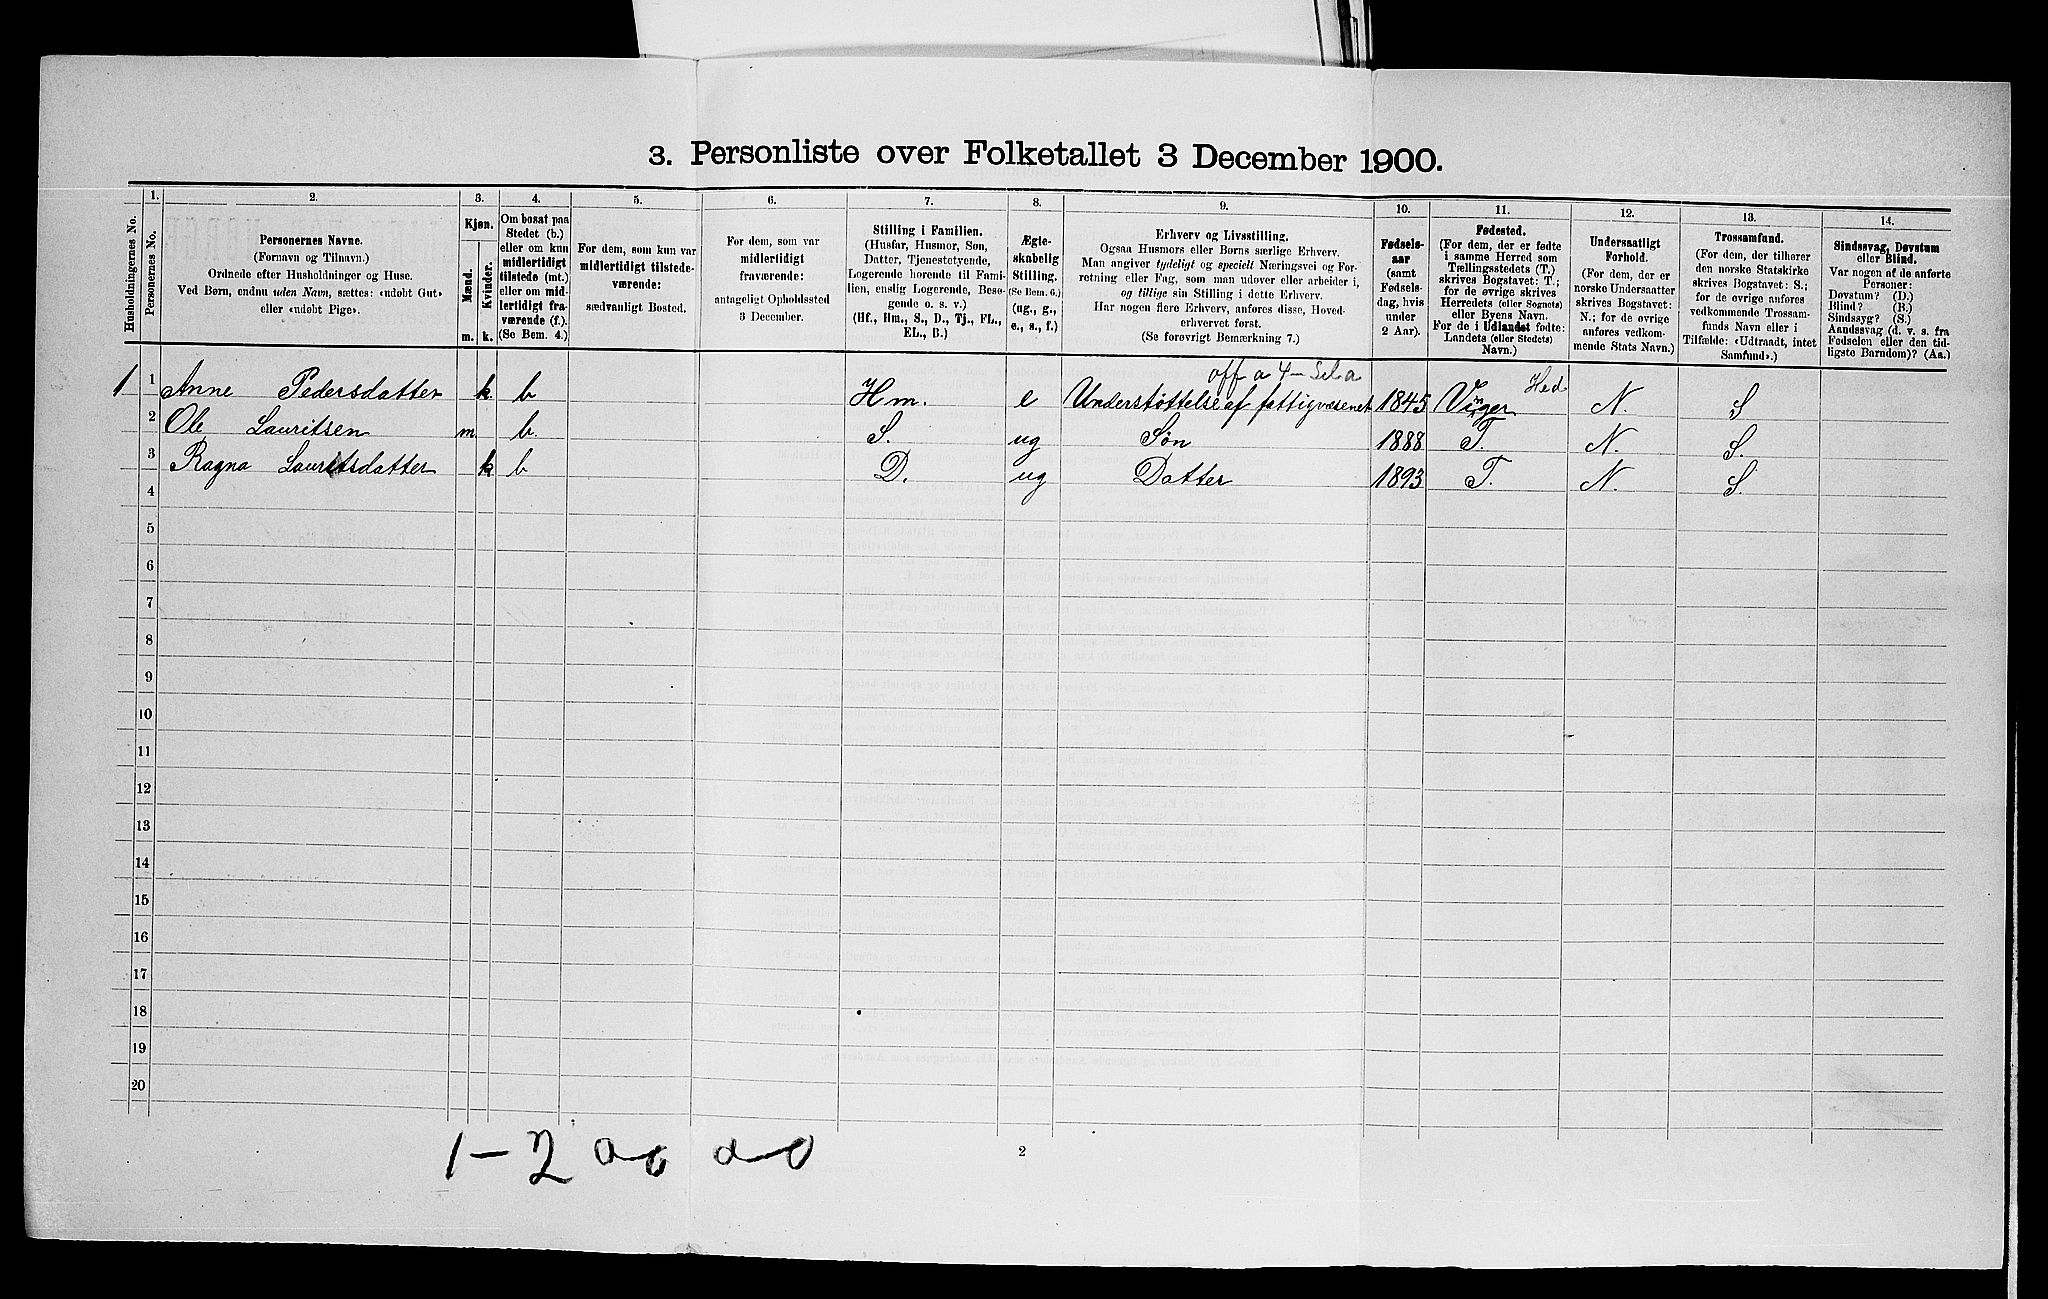 3. Personliste over Folketallet 3 December 1900.
Husholdningernes No.
1.
Personernes No.
2.
Personernes Navne.
(Fornavn og Tilnavn.)
Ordnede efter Husholdninger og Huse.
Ved Børn, endnu uden Navn, sættes: «udøbt Gut»
eller «udøbt Pige».
3.
Kjøn.
Mænd.
Kvinder.
m. k.
4.
Om bosat paa
Stedet (b.)
eller om kun
midlertidigt
tilstede (mt.)
eller om mid-
lertidigt fra-
værende (f.).
(Se Bem. 4.)
5.
For dem, som kun var
midlertidigt tilstede-
værende:
sædvanligt Bosted.
6.
For dem, som var
midlertidigt
fraværende:
antageligt Opholdssted
3 December.
7.
Stilling i Familien.
(Husfar, Husmor, Søn,
Datter, Tjenestetyende,
Logerende hørende til Fami-
lien, enslig Logerende, Besø-
gende o. s. v.)
(Hf., Hm., S., D., Tj., FL.,
EL., B.)
8.
Ægte-
skabelig
Stilling.
(Se Bem. 6.)
(ug., g.,
e., s., f.)
9.
Erhverv og Livsstilling.
Ogsaa Husmors eller Børns særlige Erhverv.
Man angiver tydeligt og specielt Næringsvei og For-
retning eller Fag, som man udøver eller arbeider i,
og tillige sin Stilling i dette Erhverv.
Har nogen flere Erhverv, anføres disse, Hoved-
erhvervet først.
(Se forøvrigt Bemærkning 7.)
10.
Fødsels-
aar
(samt
Fødsels-
dag, hvis
under
2 Aar).
11.
Fødested.
(For dem, der er fødte
i samme Herred som
Tællingsstedets (T.)
skrives Bogstavet: T.;
for de øvrige skrives
Herredets (eller Sognets)
eller Byens Navn.
For de i Udlandet fødte:
Landets (eller Stedets)
Navn.)
12.
Undersaatligt
Forhold.
(For dem, der er
norske Undersaatter
skrives Bogstavet:
N.; for de øvrige
anføres vedkom-
mende Stats Navn.)
13.
Trossamfund.
(For dem, der tilhører
den norske Statskirke
skrives Bogstavet: S.;
for de øvrige anføres
vedkommende Trossam-
funds Navn eller i
Tilfælde: «Udtraadt, intet
Samfund».)
14.
Sindssvag, Døvstum
eller Blind.
Var nogen af de anførte
Personer:
Døvstum? (D.)
Blind? (B.)
Sindssyg? (S.)
Aandssvag (d. v. s. fra
Fødselen eller den tid-
ligste Barndom)? (Aa.)
off a 4
Hed
1 1 Anne Pedersdatter k. b Hm. e Understøttelse af fattigvæsenet 1845 Vinger N. S
2 Ole Lauritsen m. b. S. ug Søn 1888 T. N. S.
3 Ragna Lauritsdatter k b D. ug Datter 1893 T. N. S.
4
5
6
7
8
9
10
11
12
13
14
15
16
17
18
19
20
1-2
2